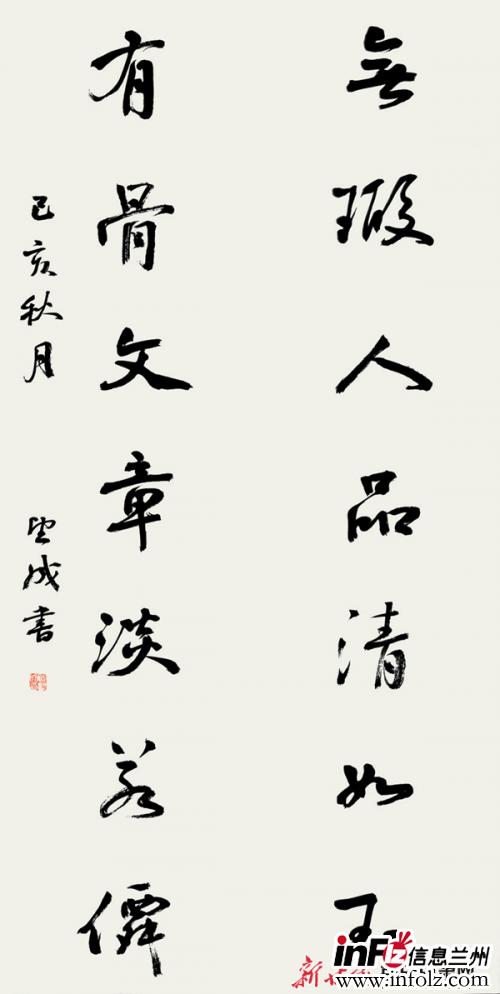 無瑕人品清如玉
有骨文章淡若僊
己亥秋月
书
inf lz 信息兰州
www.infolz.com